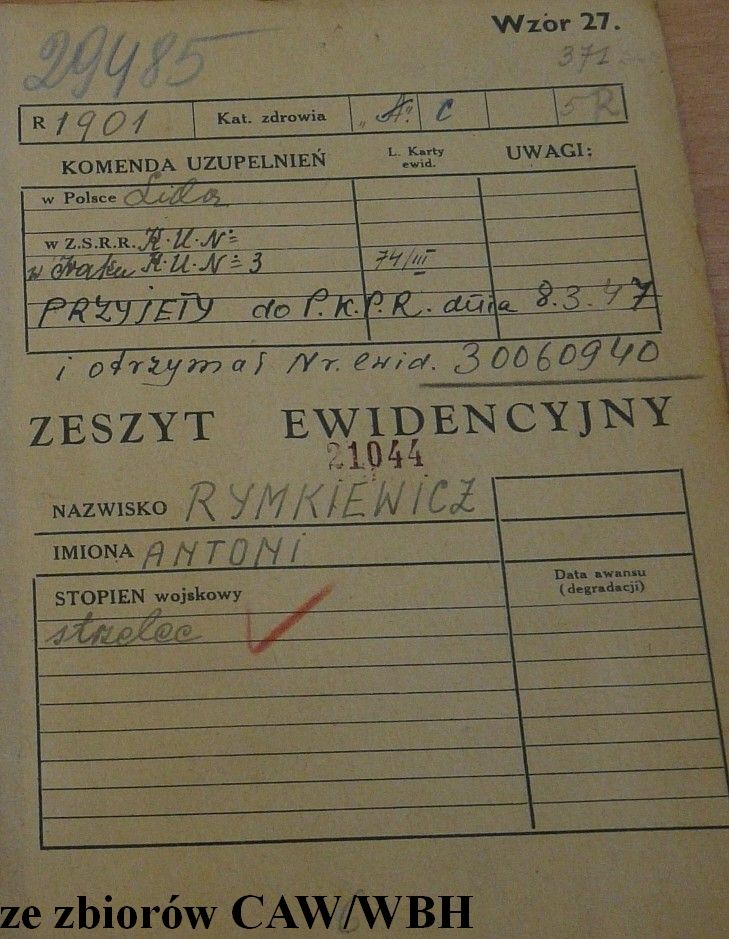 Wzór 27.
29485
371
R 1901 Kat. zdrowia „A" C 5 R
KOMENDA UZUPEŁNIEŃ L. Karty ewid. UWAGI:
w Polsce Lida
w Z.S.R.R. K.U.N=
w Iraku K.U.N= 3 74/III
PRZYJETY do P.K.P.R. dnia 8.3.47
i otrzymał Nr. ewid. 30060940
ZESZYT EWIDENCYJNY
21044
NAZWISKO RYMKIEWICZ
IMIONA ANTONI
STOPIEŃ wojskowy Data awansu (degradacji)
strzelec
6
ze zbiorów CAW/WBH